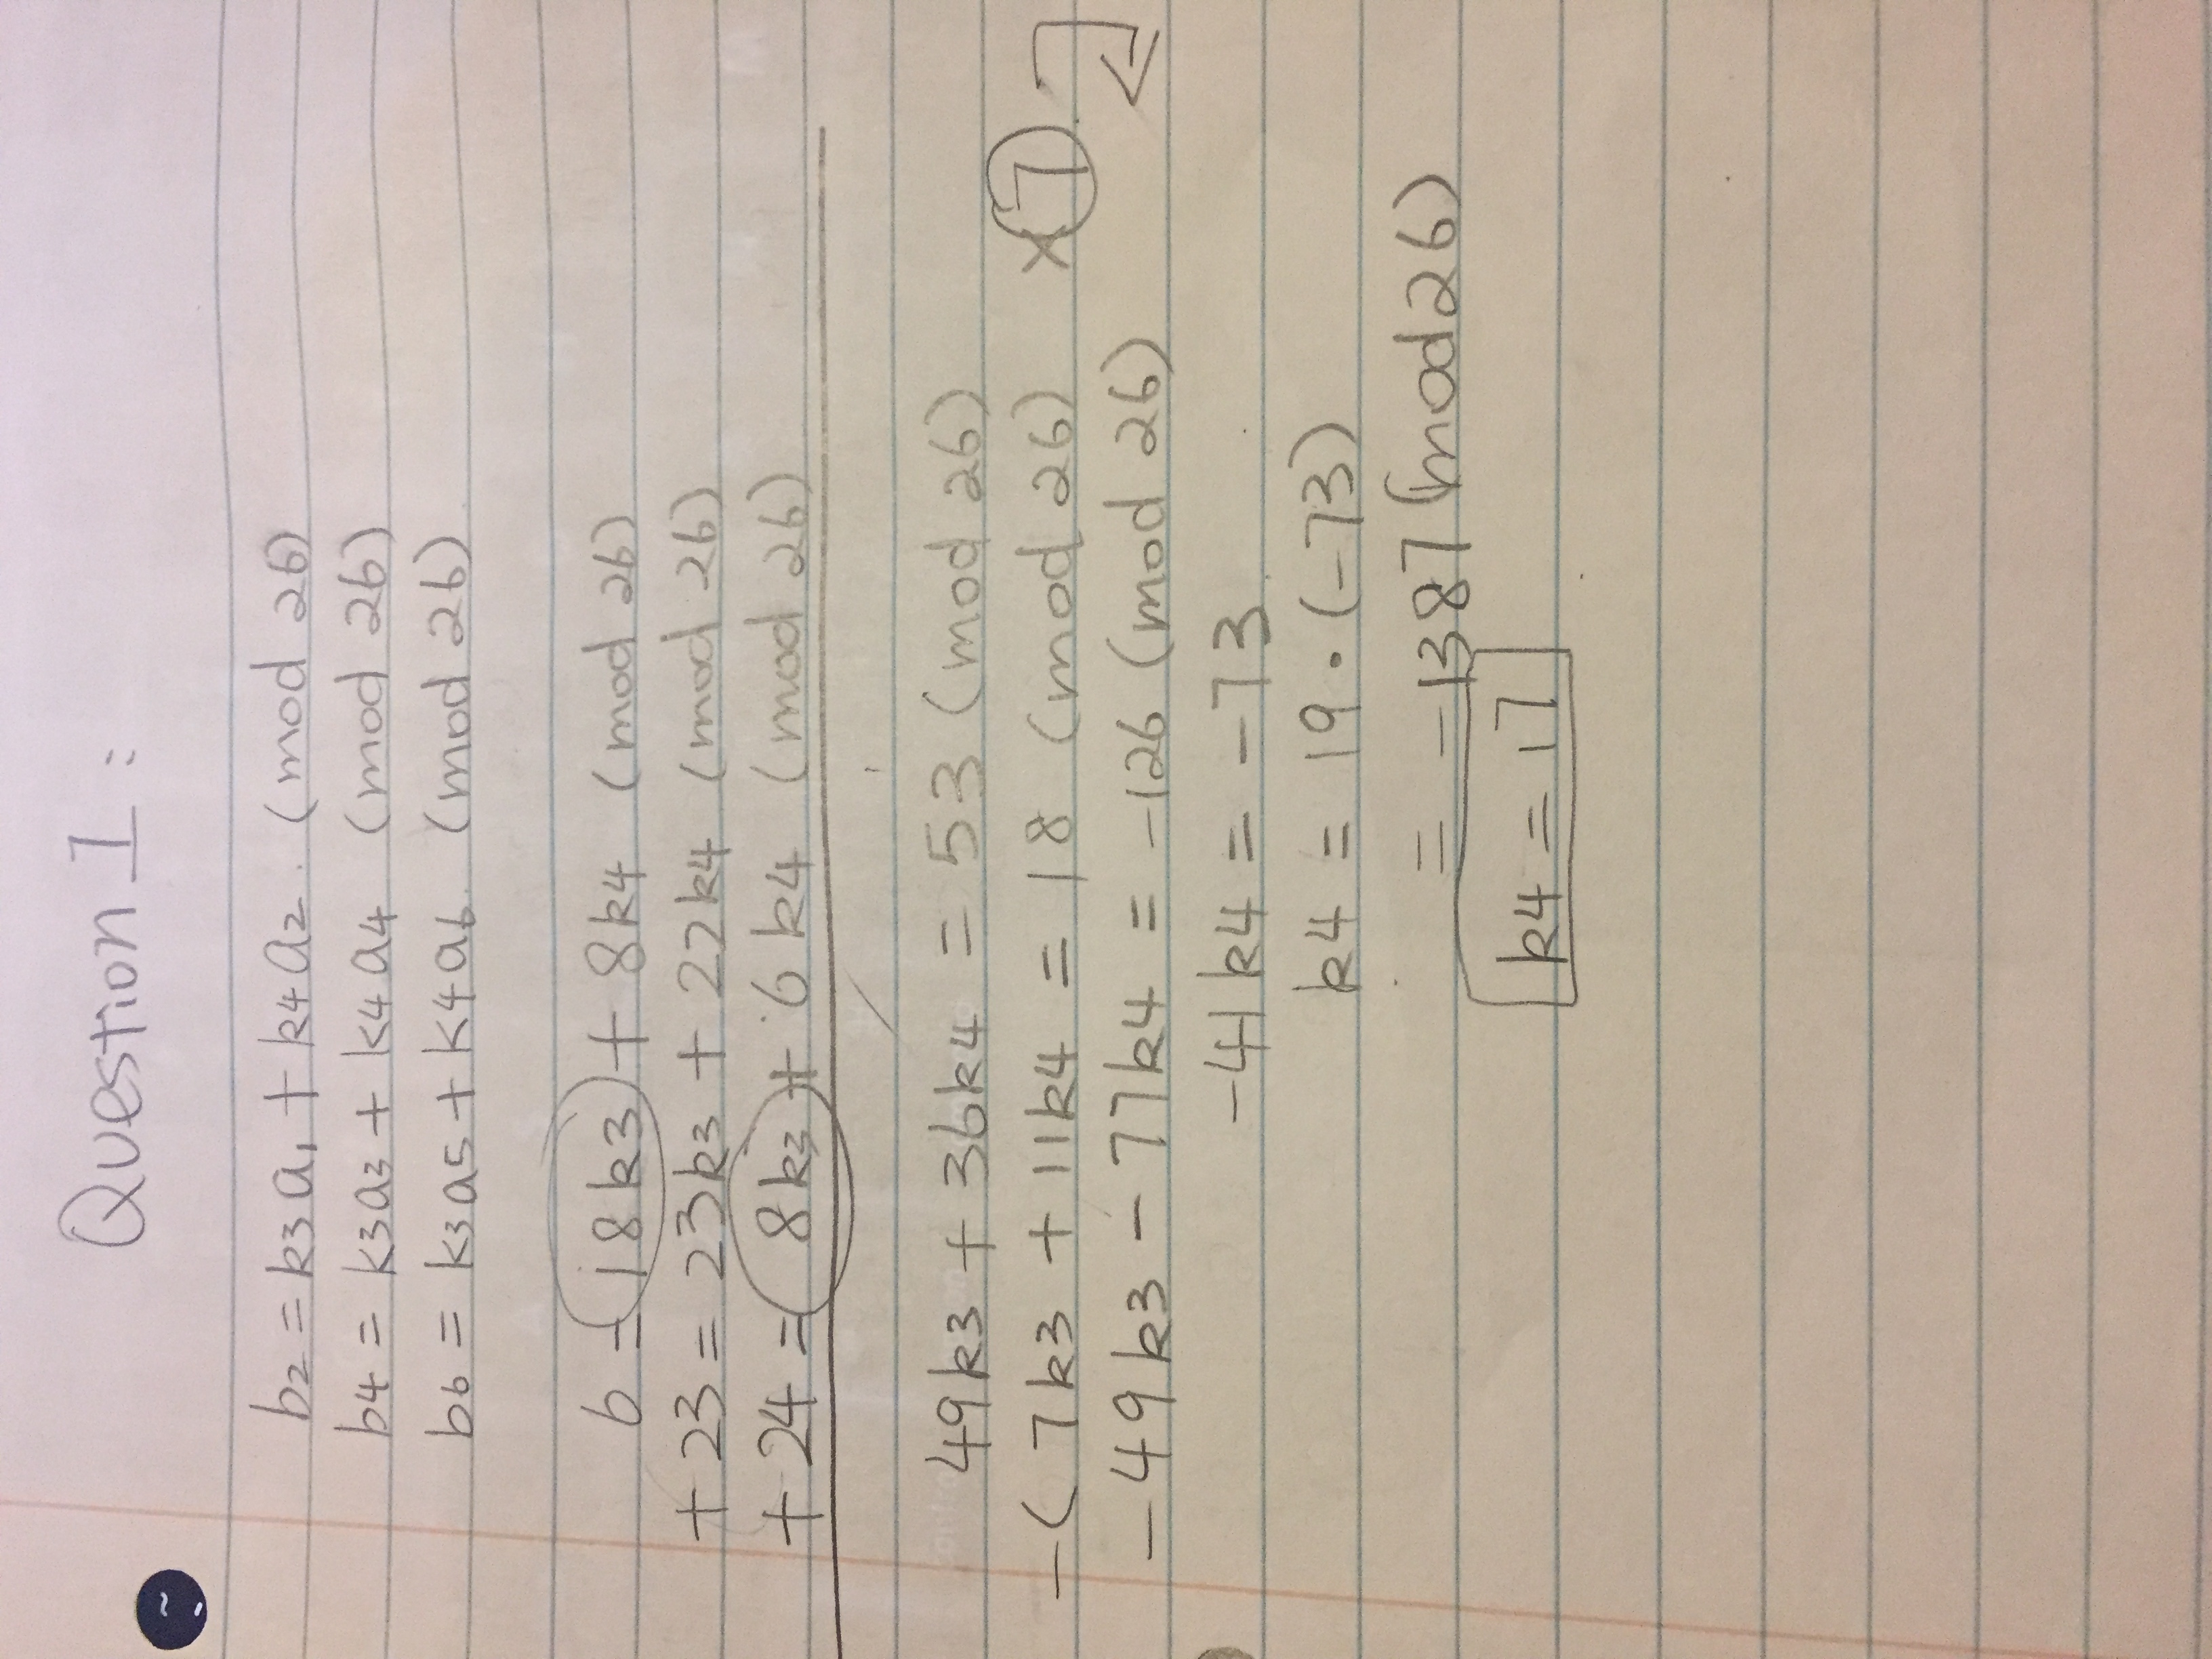 Question 1:
b2 = k3a1 + k4a2. (mod 26)
b4 = k3a3 + k4a4 (mod 26)
b6 = k3a5 + k4a6. (mod 26)
6 = 18k3 + 8k4 (mod 26)
+ 23 = 23k3 + 22k4 (mod 26)
+ 24 = 8k3 + 6k4 (mod 26)
49k3 + 36k4 = 53 (mod 26)
-( 7k3 + 11k4 = 18 (mod 26) x7
-49k3 - 77k4 = -126 (mod 26)
-41k4 = -73
k4 = 19 · (-73)
= -1387 (mod 26)
k4 = 17